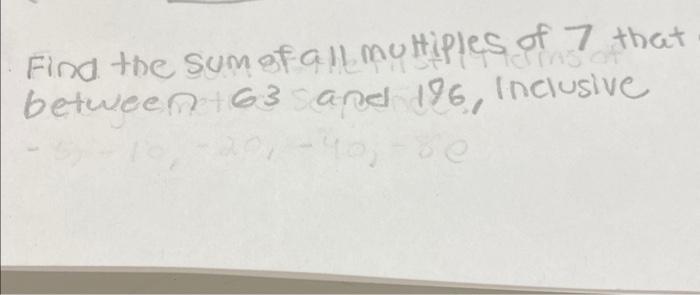 Find the sum of all multiples of 7 that
between 63 and 196, Inclusive
-10, -20, -40, -80